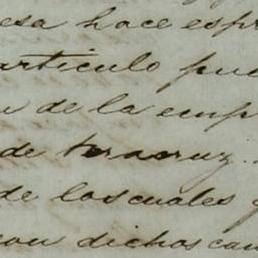 esa hace espr
articulo pue
de la emp
de Veracruz.
de los cuales
con dichos can